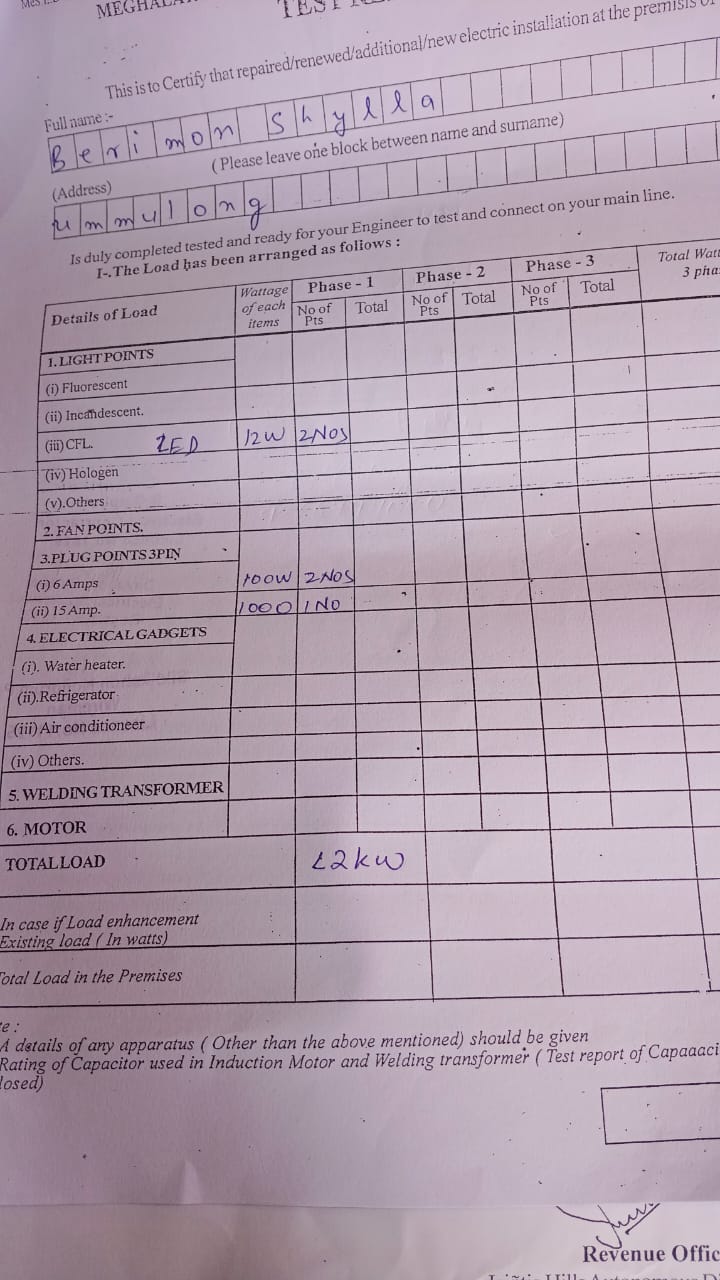 MEGHALA
TEST
This is to Certify that repaired/renewed/additional/new electric installation at the premisis of
Full name :-
Berimon Shylla
( Please leave one block between name and surname)
(Address)
ummulong
Is duly completed tested and ready for your Engineer to test and connect on your main line.
I-.The Load has been arranged as follows :
Details of Load Wattage of each items Phase - 1 Phase - 2 Phase - 3 Total Wat
3 pha
No of Pts Total No of Pts Total No of Pts Total
1. LIGHT POINTS
(i) Fluorescent
(ii) Incandescent.
(iii) CFL. LED 12W 2NOS
(iv) Hologen
(v).Others
2. FAN POINTS.
3.PLUG POINTS 3PIN
(i) 6 Amps 100W 2NOS
(ii) 15 Amp. 1000 1NO
4. ELECTRICAL GADGETS
(i). Water heater.
(ii).Refrigerator
(iii) Air conditioneer
(iv) Others.
5. WELDING TRANSFORMER
6. MOTOR
TOTAL LOAD <2kw
In case if Load enhancement
Existing load ( In watts)
Total Load in the Premises
te :
A details of any apparatus ( Other than the above mentioned) should be given
Rating of Capacitor used in Induction Motor and Welding transformer ( Test report of Capaaaci
losed)
Revenue Offic